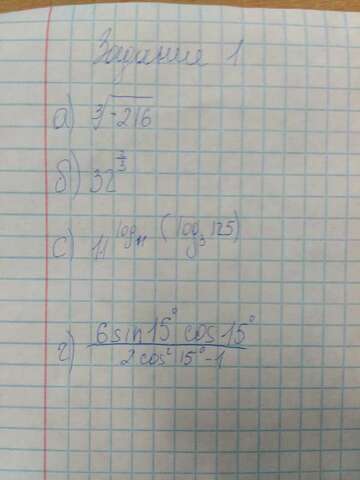 Задание 1
а) ∛-216
б) 32^(3/5)
с) 11^(log₁₁(log₅125))
г) (6 sin 15° cos 15°)/(2 cos² 15° - 1)